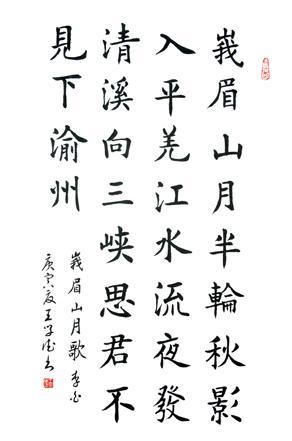 峩眉山月半輪秋影
入平羌江水流夜發
清溪向三峽思君不
見下渝州
峩眉山月歌 李白
庚寅夏王學